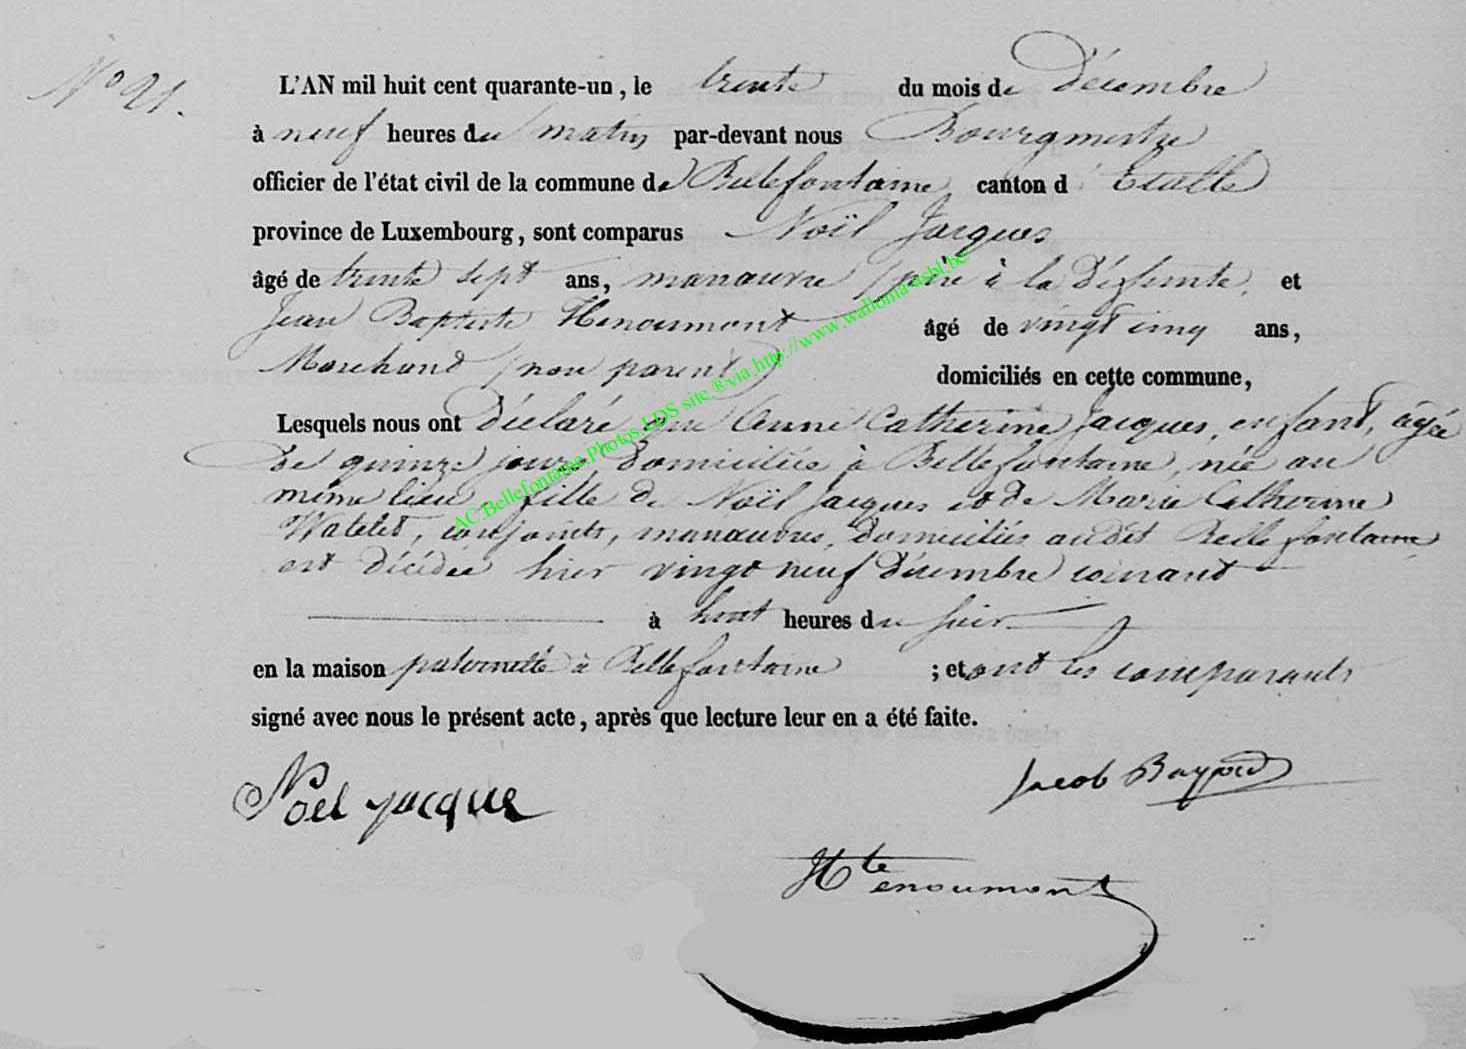 N° 21.
L'AN mil huit cent quarante-un, le trente du mois de Décembre
à neuf heures du matin par-devant nous Bourgmestre
officier de l'état civil de la commune de Bellefontaine canton d'Etalle
province de Luxembourg, sont comparus Noël Jacques
âgé de trente sept ans, manœuvre (père à la Défunte, et
Jean Baptiste Henoumont âgé de vingt cinq ans,
Marchand (non parent) domiciliés en cette commune,
Lesquels nous ont Déclaré que Anne Catherine Jacques, enfant, âgée
de quinze jours domiciliée à Bellefontaine, née au
même lieu, fille de Noël Jacques et de Marie Catherine
Watelet, conjoints, manœuvres, domiciliés audit Bellefontaine
est décédée hier vingt neuf Décembre courant
à huit heures du soir
en la maison paternelle à Bellefontaine ; et ont les comparants
signé avec nous le présent acte, après que lecture leur en a été faite.
Noël jacque
Jacob
Henoumont
AC.Bellefontaine.Photos.LDS site.®via http://www.wallonia-asbl.be/